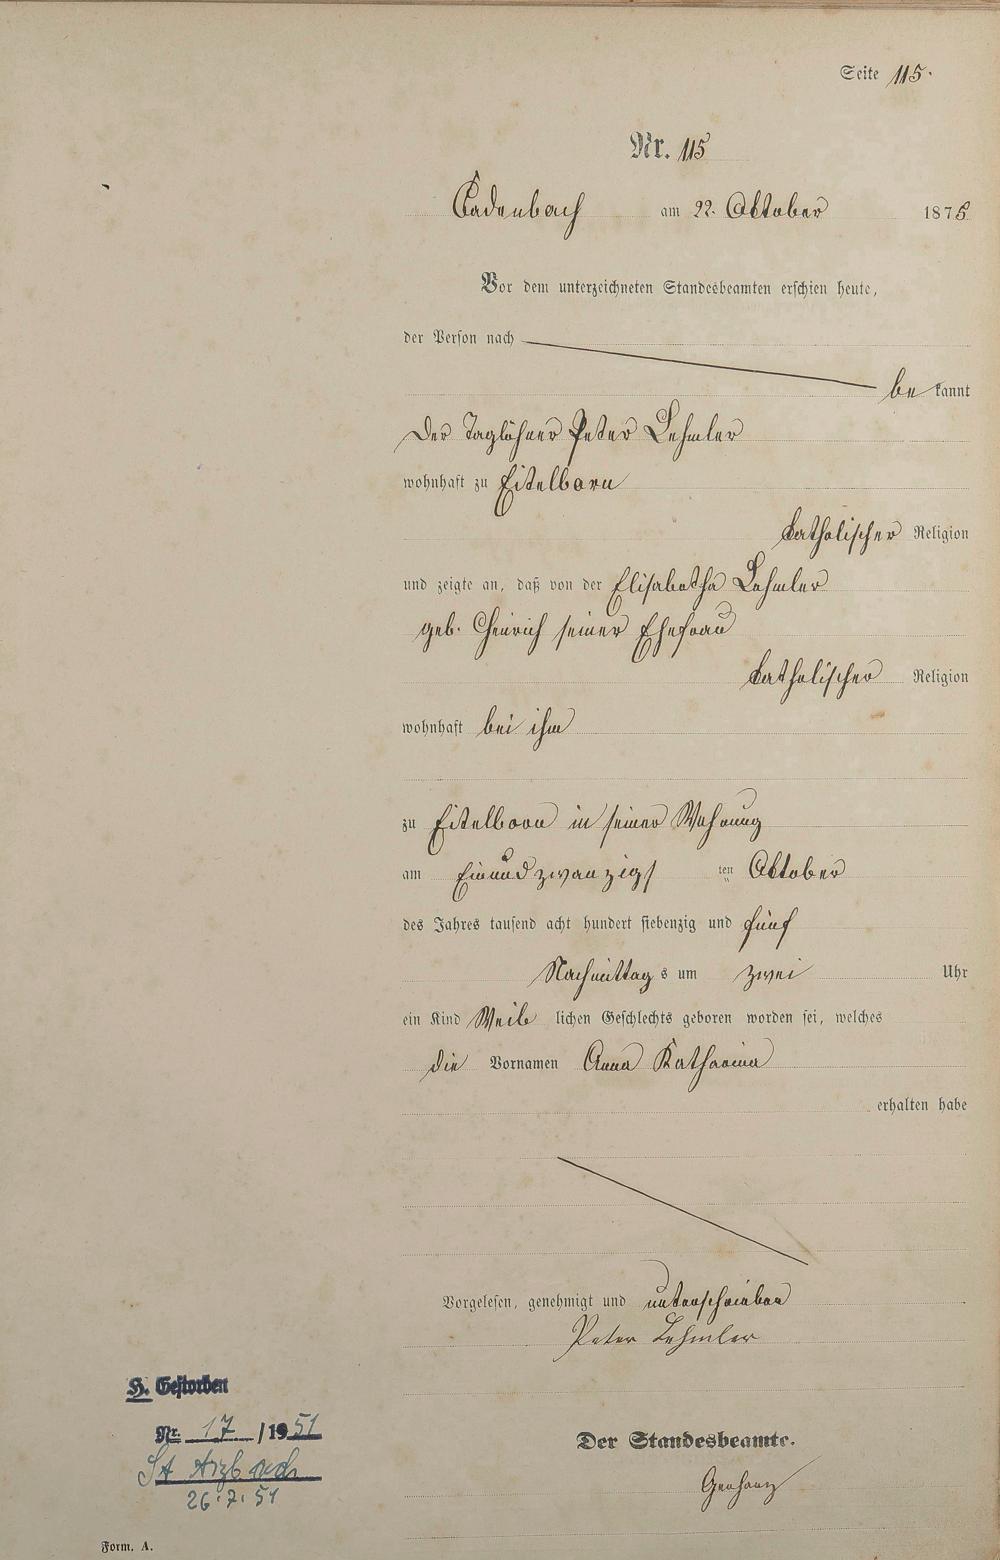 Seite 115.
Nr. 115
Cadenbach am 22. Oktober 1875
Vor dem unterzeichneten Standesbeamten erschien heute,
der Person nach
be kannt
Der Taglöhner Peter Lehmler
wohnhaft zu Eitelborn
katholischer Religion
und zeigte an, daß von der Elisabetha Lehmler
geb. Heinrich seiner Ehefrau
katholischer Religion
wohnhaft bei ihm
zu Eitelborn in seiner Wohnung
am Einundzwanzigs ten Oktober
des Jahres tausend acht hundert siebenzig und fünf
Nachmittag s um zwei Uhr
ein Kind Weib lichen Geschlechts geboren worden sei, welches
die Vornamen Anna Katharina
erhalten habe
Vorgelesen, genehmigt und unterschrieben
Peter Lehmler
H. Gestorben
Nr. 17 / 1951
St A Arzbach
26.7.51
Der Standesbeamte.
Form. A.